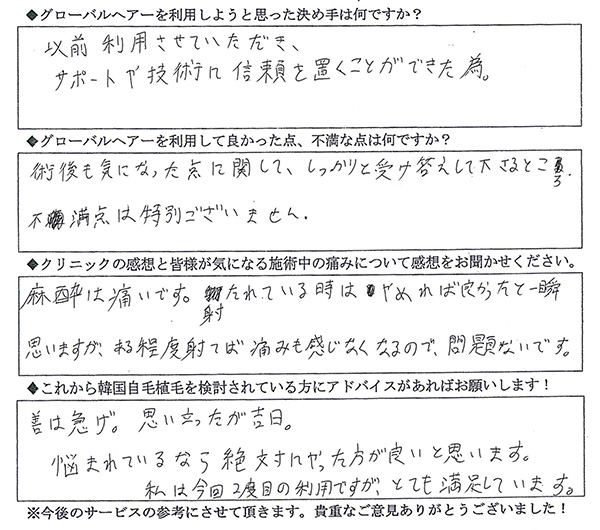 ◆グローバルヘアーを利用しようと思った決め手は何ですか？
以前利用させていただき、
サポートや技術に信頼を置くことができた為。
◆グローバルヘアーを利用して良かった点、不満な点は何ですか？
術後も気になった点に関して、しっかりと受け答えして下さるところ.
不満点は特別ございません.
◆クリニックの感想と皆様が気になる施術中の痛みについて感想をお聞かせください。
麻酔は痛いです。射たれている時はやめれば良かったと一瞬
思いますが、ある程度射てば痛みも感じなくなるので、問題ないです。
◆これから韓国自毛植毛を検討されている方にアドバイスがあればお願いします！
善は急げ。思い立ったが吉日。
悩まれているなら絶対にやった方が良いと思います。
私は今回2度目の利用ですが、とても満足しています。
※今後のサービスの参考にさせて頂きます。貴重なご意見ありがとうございました！